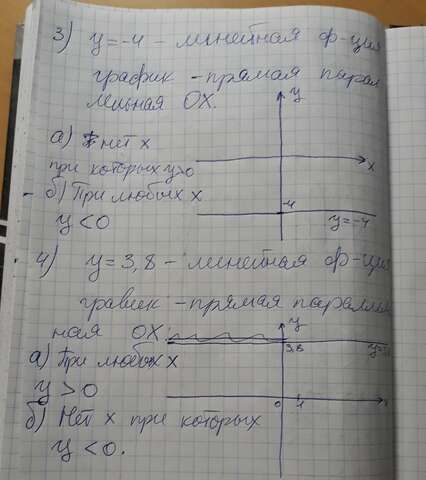 3) y=-4 - линейная ф-ция
график - прямая парал
лельная OX.
y
а) нет x
x
при которых y>0
б) При любых x
-4
y<0
y=-4
4) y=3,8 - линейная ф-ция
график - прямая паралле
ная OX.
y
3,8
а) При любых x
y>0
0 1
б) Нет x при которых
y<0.